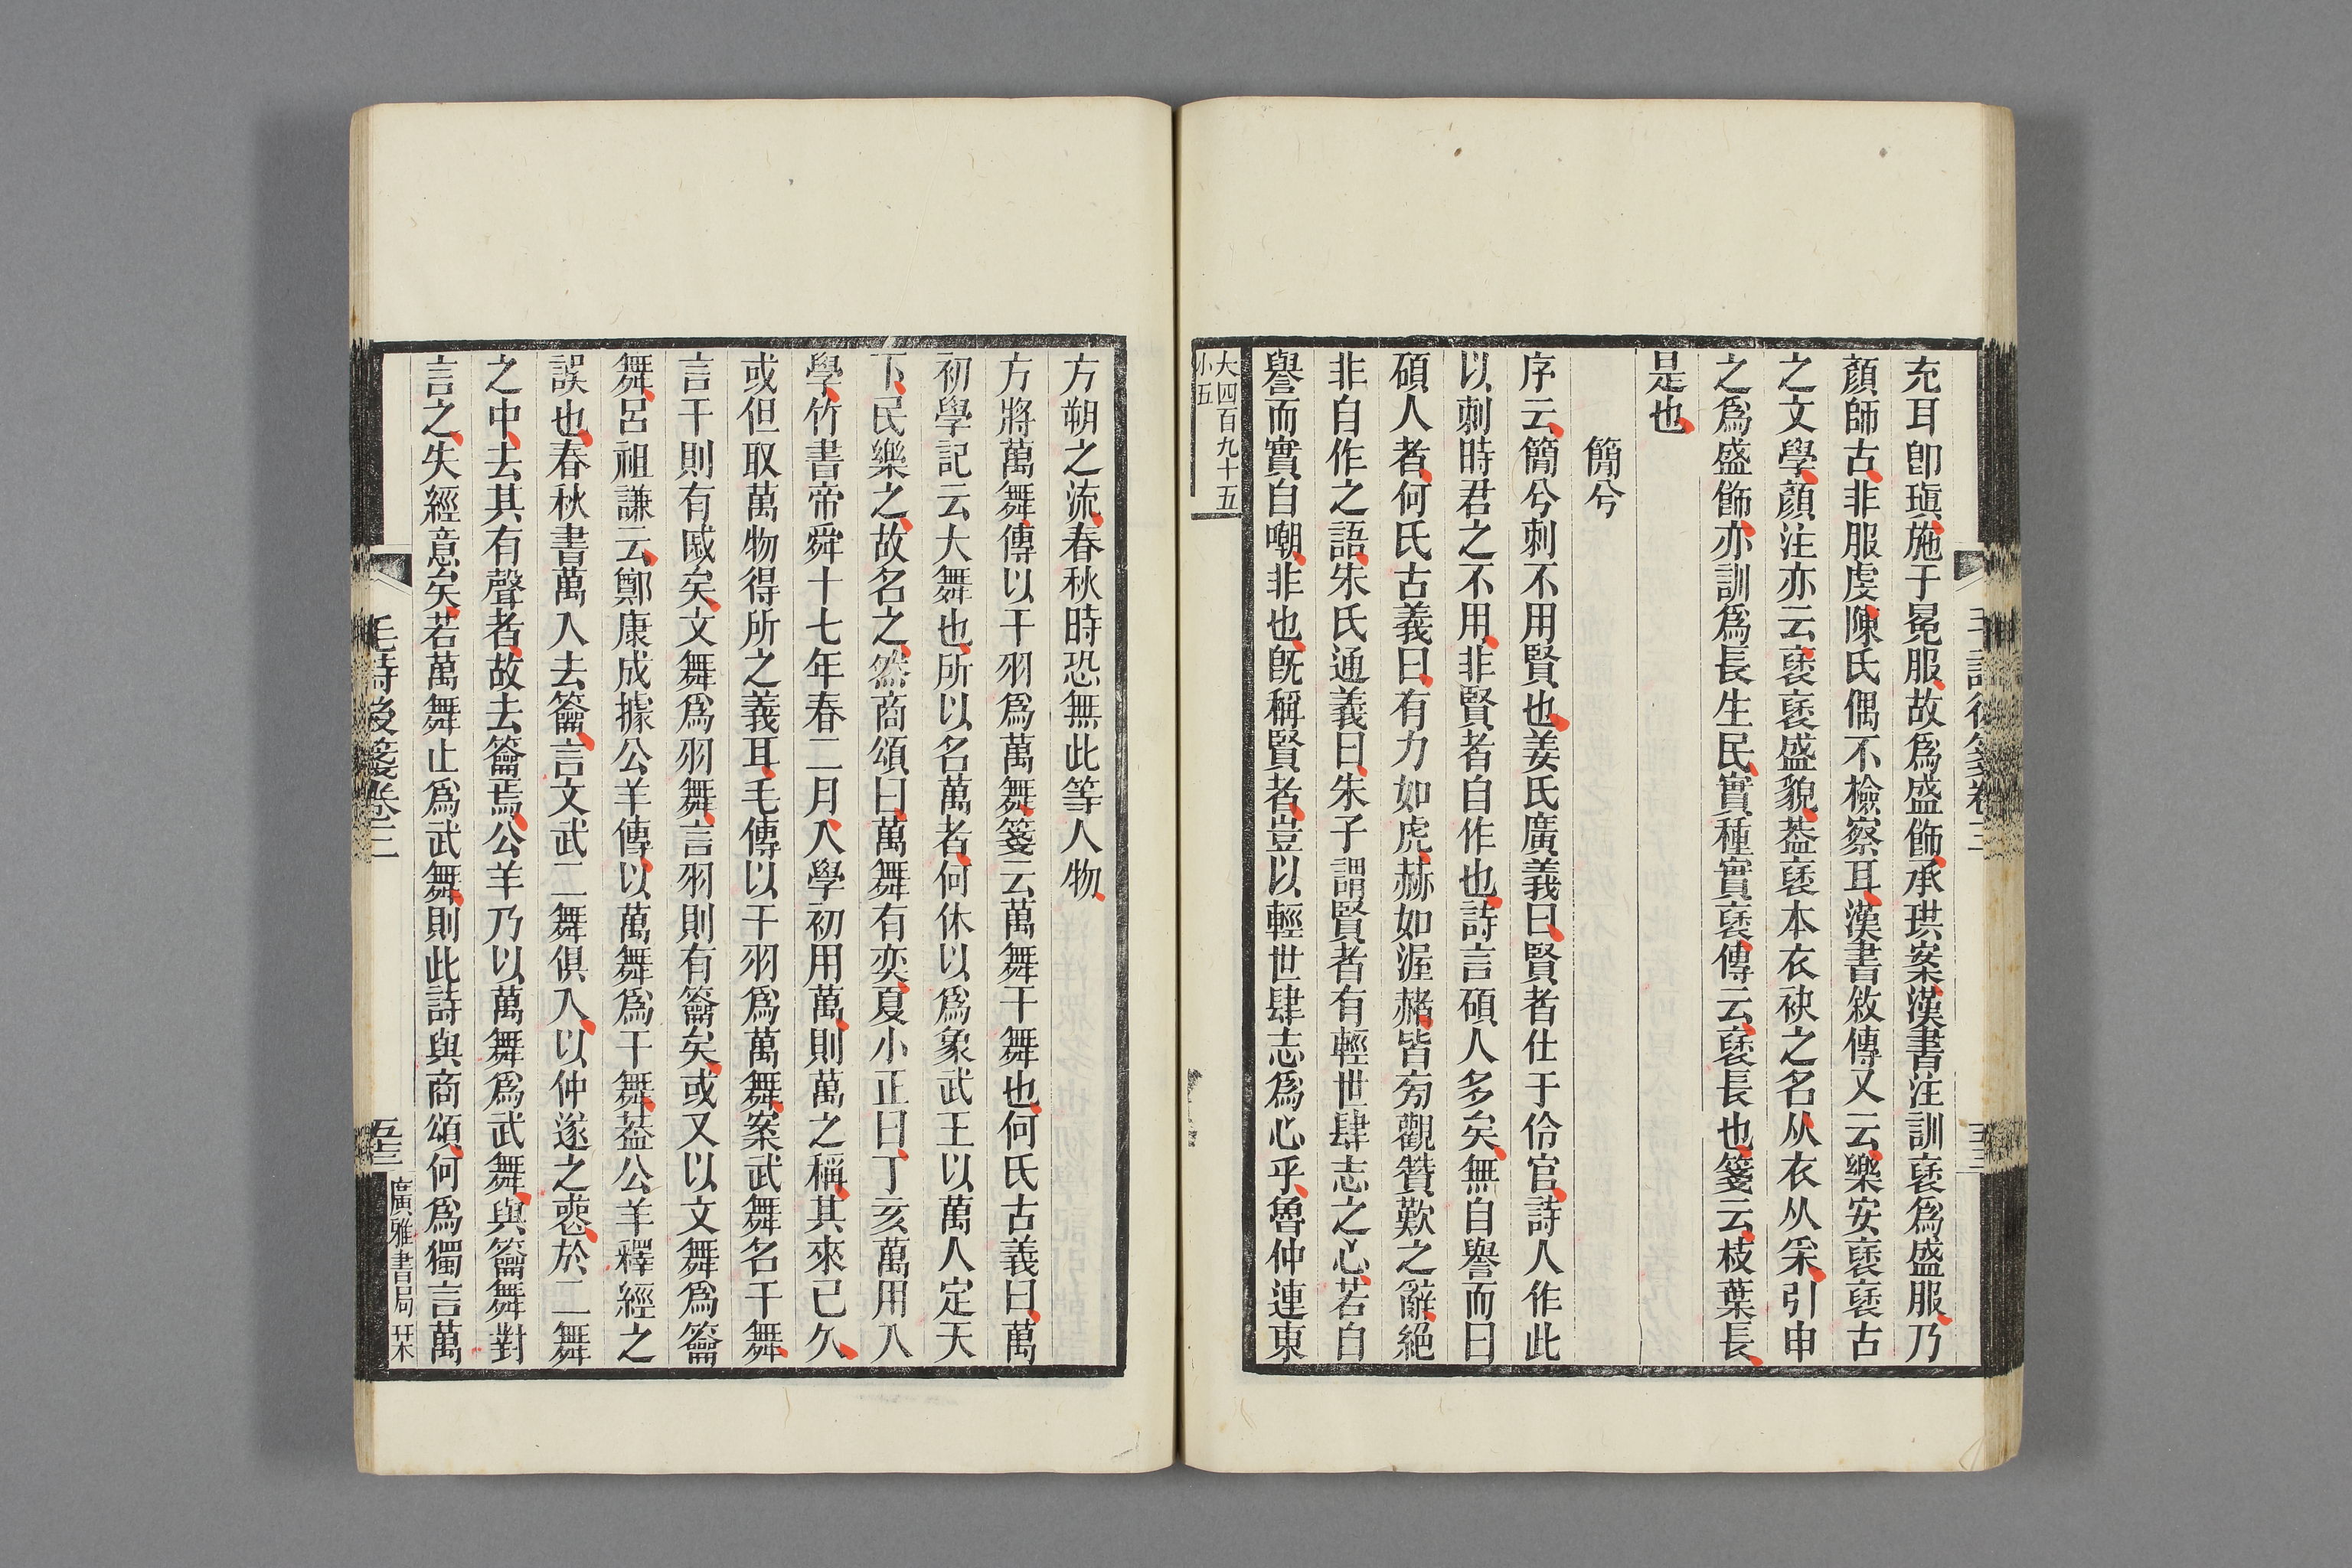 充耳卽瑱施于冕服故爲盛飾承珙案漢書注訓褎爲盛服乃
顏師古非服虔陳氏偶不檢察耳漢書敘傳又云樂安褎褎古
之文學顏注亦云褎褎盛貌葢褎本衣袂之名从衣从采引申
之爲盛飾亦訓爲長生民實種實褎傳云褎長也箋云枝葉長
是也
簡兮
序云簡兮刺不用賢也姜氏廣義曰賢者仕于伶官詩人作此
以刺時君之不用非賢者自作也詩言碩人多矣無自譽而曰
碩人者何氏古義曰有力如虎赫如渥赭皆旁觀贊歎之辭絕
非自作之語朱氏通義曰朱子謂賢者有輕世肆志之心若自
譽而實自嘲非也旣稱賢者豈以輕世肆志爲心乎魯仲連東
大四百九十五
小五
方朔之流春秋時恐無此等人物
方將萬舞傳以干羽爲萬舞箋云萬舞干舞也何氏古義曰萬
初學記云大舞也所以名萬者何休以爲象武王以萬人定天
下民樂之故名之然商頌曰萬舞有奕夏小正曰丁亥萬用入
學竹書帝舜十七年春二月入學初用萬則萬之稱其來已久
或但取萬物得所之義耳毛傳以干羽爲萬舞案武舞名干舞
言干則有戚矣文舞爲羽舞言羽則有籥矣或又以文舞爲籥
舞呂祖謙云鄭康成據公羊傳以萬舞爲干舞葢公羊釋經之
誤也春秋書萬入去籥言文武二舞俱入以仲遂之䘮於二舞
之中去其有聲者故去籥焉公羊乃以萬舞爲武舞與籥舞對
言之失經意矣若萬舞止爲武舞則此詩與商頌何爲獨言萬
毛詩後箋卷三
五三
廣雅書局栞